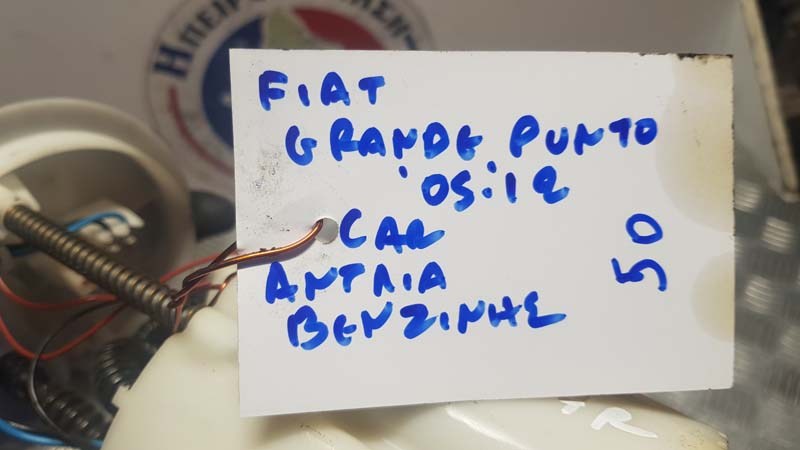 ΗΠΕΙΡ
FIAT
GRANDE PUNTO
'05:12
CAR
ΑΝΤΛΙΑ
ΒΕΝΖΙΝΗΣ
50